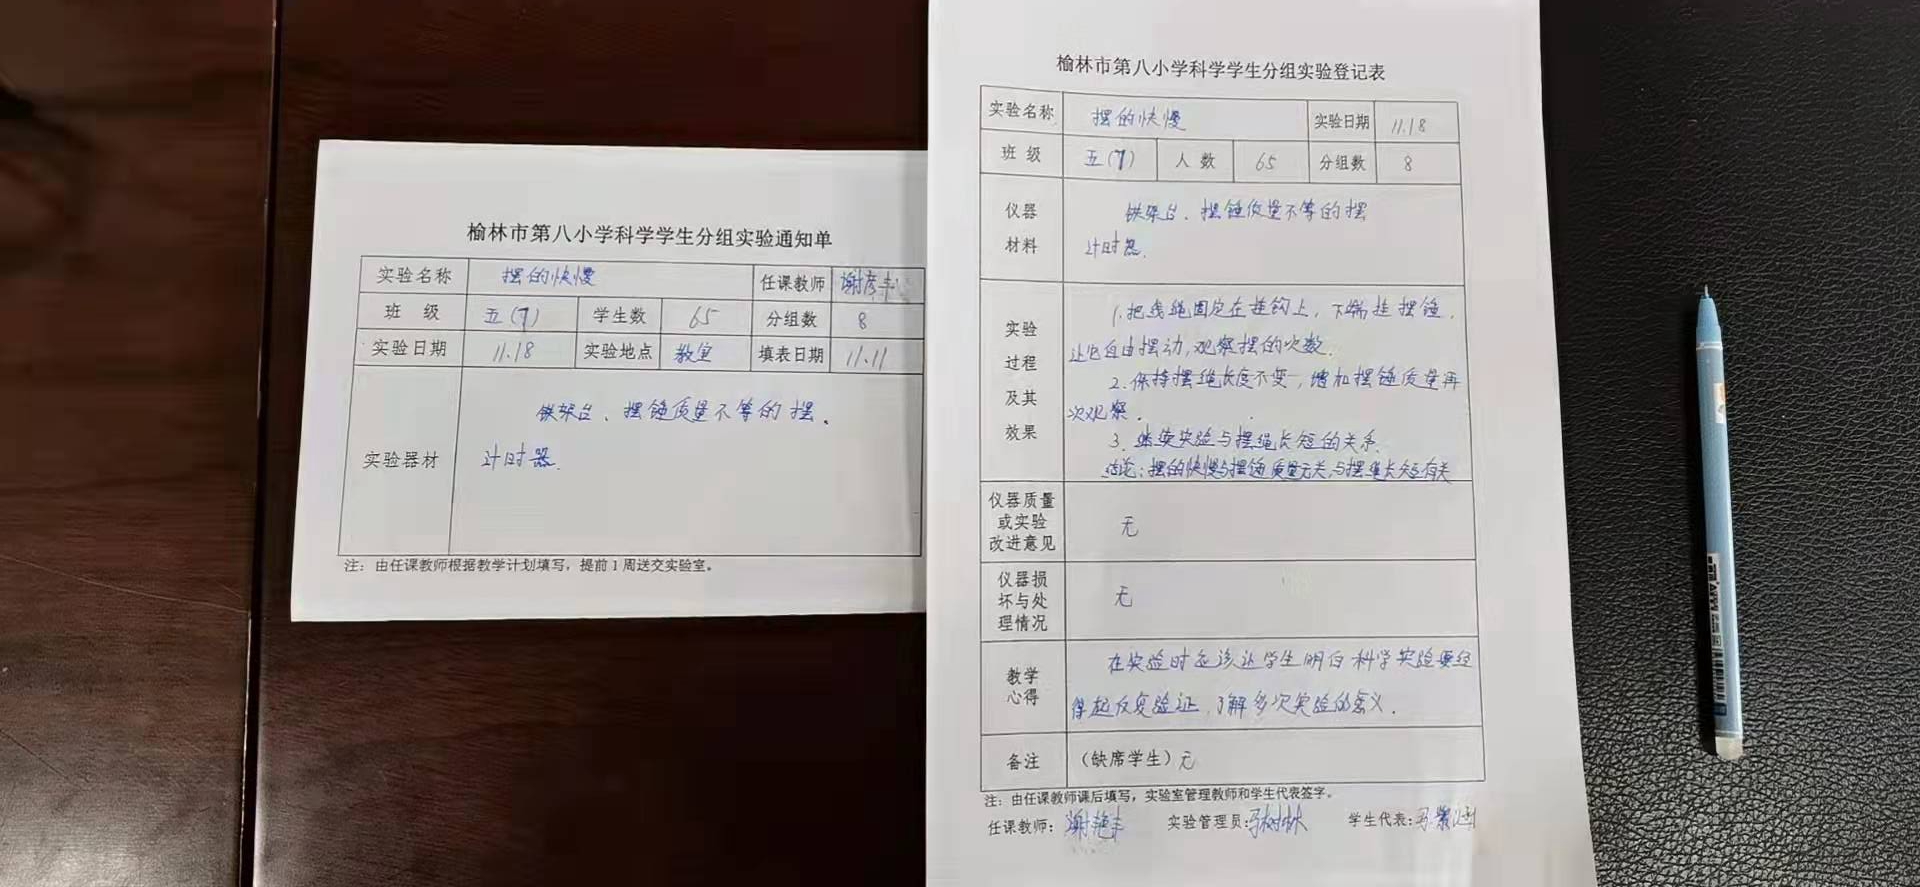 榆林市第八小学科学学生分组实验通知单
实验名称 摆的快慢 任课教师
班 级 五(7) 学生数 65 分组数 8
实验日期 11.18 实验地点 教室 填表日期 11.11
实验器材 铁架台、摆锤质量不等的摆、
计时器.
注：由任课教师根据教学计划填写，提前1周送交实验室。
榆林市第八小学科学学生分组实验登记表
实验名称 摆的快慢 实验日期 11.18
班 级 五(7) 人 数 65 分组数 8
仪器
材料
铁架台、摆锤质量不等的摆
计时器.
实验
过程
及其
效果
1.把线绳固定在挂钩上，下端挂摆锤，
让它自由摆动,观察摆的次数.
2.保持摆绳长度不变,增加摆锤质量再
次观察.
3. 实验与摆绳长短的关系.
结论:摆的快慢与摆锤质量无关,与摆绳长短有关
仪器质量
或实验
改进意见
无
仪器损
坏与处
理情况
无
教学
心得
在实验时应该让学生明白科学实验要经
得起反复验证,了解多次实验的意义.
备注 （缺席学生）无
注：由任课教师课后填写，实验室管理教师和学生代表签字。
任课教师： 实验管理员:马树林 学生代表: